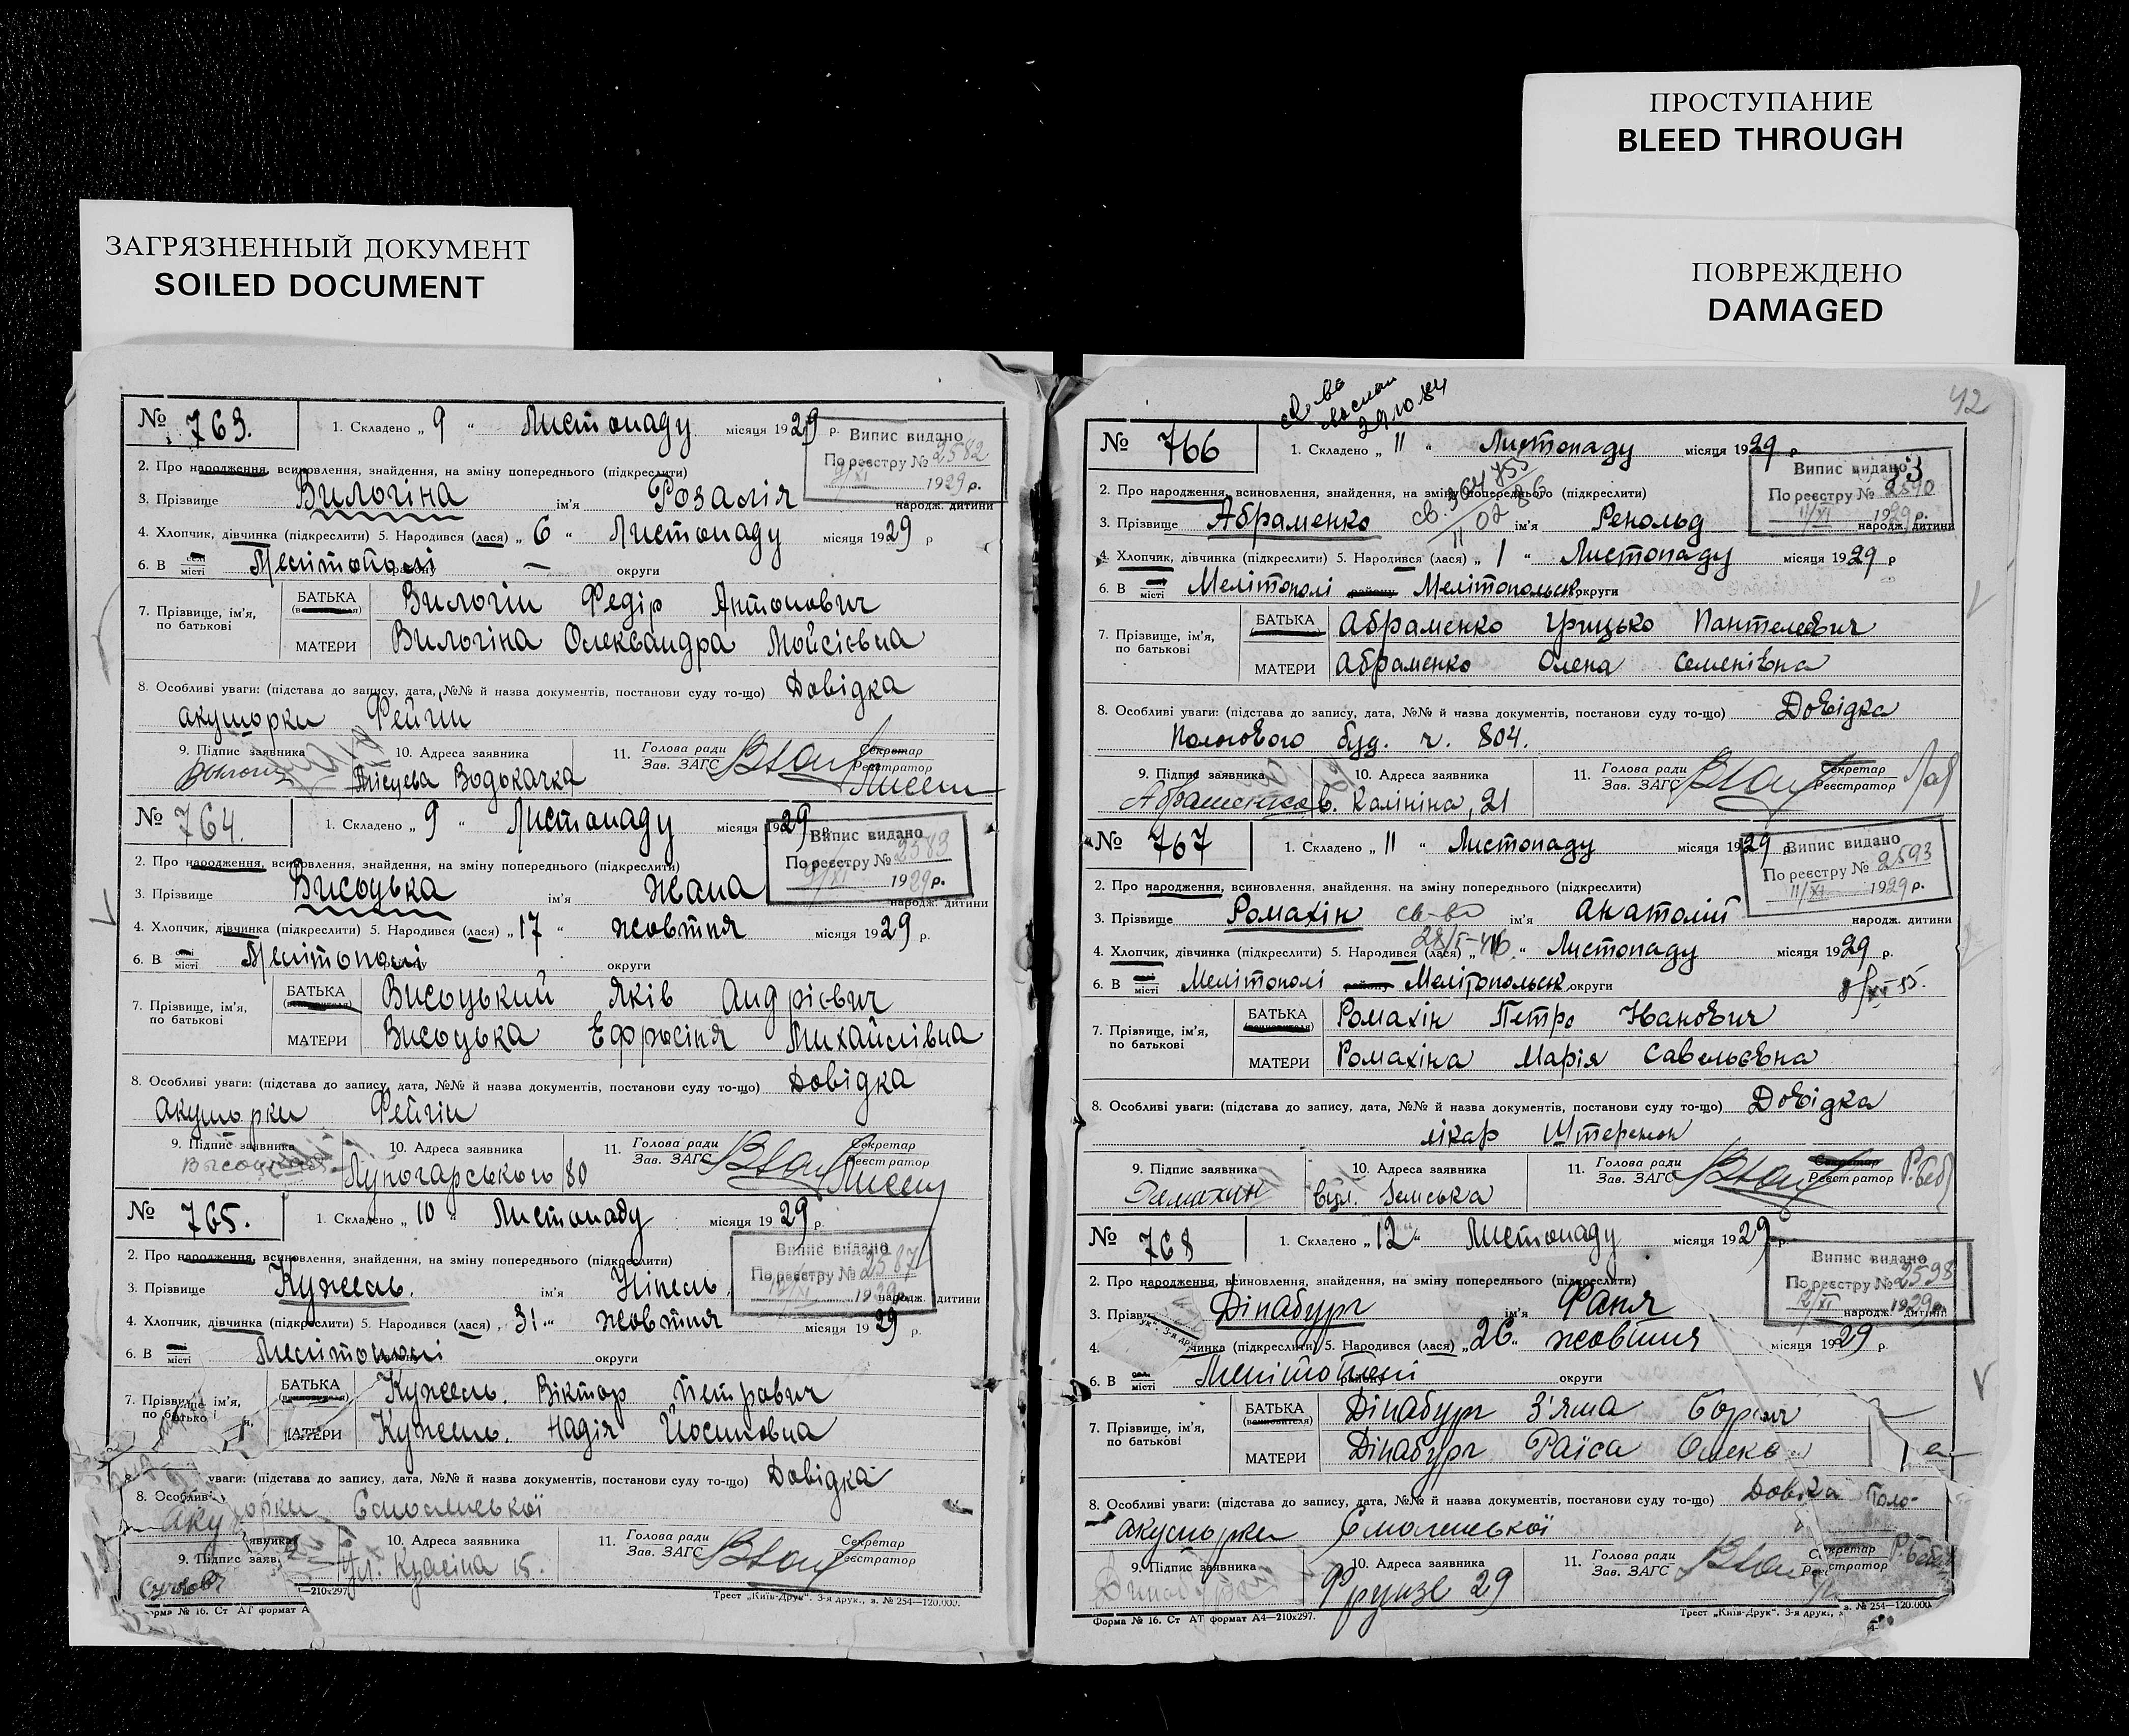 ПРОСТУПАНИЕ
BLEED THROUGH
ПОВРЕЖДЕНО
DAMAGED
ЗАГРЯЗНЕННЫЙ ДОКУМЕНТ
SOILED DOCUMENT
№ 763. 1. Складено „ 9 “ Листопаду місяця 1929 р.
Випис видано
По реєстру № 2582
9/XI 1929 р.
2. Про народження, всиновлення, знайдення, на зміну попереднього (підкреслити)
3. Прізвище Вилогіна ім'я Розалія народж. дитини
4. Хлопчик, дівчинка (підкреслити) 5. Народився (лася) „ 6 “ Листопаду місяця 1929 р
6. В місті Мелітополі округи
7. Прізвище, ім'я, по батькові
БАТЬКА Вилогін Федір Антонович
МАТЕРИ Вилогіна Олександра Мойсієвна
8. Особливі уваги: (підстава до запису, дата, №№ й назва документів, постанови суду то-що) Довідка
акушорки Фейгін
9. Підпис заявника 10. Адреса заявника 11. Голова ради Зав. ЗАГС Секретар Реєстратор
Водокачка
№ 764. 1. Складено „ 9 “ Листопаду місяця 1929
Випис видано
По реєстру № 2583
9/XI 1929 р.
2. Про народження, всиновлення, знайдення, на зміну попереднього (підкреслити)
3. Прізвище Висоцька ім'я Жана народж. дитини
4. Хлопчик, дівчинка (підкреслити) 5. Народився (лася) „ 17 “ жовтня місяця 1929 р.
6. В місті Мелітополі округи
7. Прізвище, ім'я, по батькові
БАТЬКА Висоцький Яків Андрієвич
МАТЕРИ Висоцька Ефросіня Михайлівна
8. Особливі уваги: (підстава до запису, дата, №№ й назва документів, постанови суду то-що) Довідка
акушорки Фейгін
9. Підпис заявника 10. Адреса заявника 11. Голова ради Зав. ЗАГС Секретар Реєстратор
Луночарського 80
№ 765. 1. Складено „ 10 “ Листопаду місяця 1929 р.
Випис видано
По реєстру № 2587
2. Про народження, всиновлення, знайдення, на зміну попереднього (підкреслити)
3. Прізвище Кужель. ім'я Нінель народж. дитини
4. Хлопчик, дівчинка (підкреслити) 5. Народився (лася) „ 31 “ жовтня місяця 1929 р.
6. В місті Мелітополі округи
7. Прізвище, ім'я,
БАТЬКА Кужель. Віктор Петрович
МАТЕРИ Кужель. Надія Йосиповна
8. Особливі уваги: (підстава до запису, дата, №№ й назва документів, постанови суду то-що) Довідка
акушорки Смоленської
9. Підпис заявника 10. Адреса заявника 11. Голова ради Зав. ЗАГС Секретар Реєстратор
Ул. Красіна 15.
Форма № 16. Ст АТ формат А
Трест „Київ-Друк“. 3-я друк., з. № 254—120.000.
42
29 10 84
№ 766 1. Складено „ 11 “ Листопаду місяця 1929 р
Випис видано
По реєстру № 2590
11/XI 1929 р.
2. Про народження, всиновлення, знайдення, на зміну попереднього (підкреслити)
3. Прізвище Абраменко ім'я Рекольд народж. дитини
4. Хлопчик, дівчинка (підкреслити) 5. Народився (лася) „ 1 “ Листопаду місяця 1929 р
6. В місті Мелітополі району Мелітопольск. округи
7. Прізвище, ім'я, по батькові
БАТЬКА Абраменко Грицько Пантелеевич
МАТЕРИ Абраменко Олена Семенівна
8. Особливі уваги: (підстава до запису, дата, №№ й назва документів, постанови суду то-що) Довідка
Пологового буд. ч. 804.
9. Підпис заявника 10. Адреса заявника 11. Голова ради Зав. ЗАГС Секретар Реєстратор
Абраменко в. Калініна, 21
№ 767 1. Складено „ 11 “ Листопаду місяця 1929
Випис видано
По реєстру № 2593
11/XI 1929 р.
2. Про народження, всиновлення, знайдення, на зміну попереднього (підкреслити)
3. Прізвище Ромахін св-во ім'я Анатолій народж. дитини
4. Хлопчик, дівчинка (підкреслити) 5. Народився (лася) Листопаду місяця 1929 р.
6. В місті Мелітополі району Мелітопольск. округи
7. Прізвище, ім'я, по батькові
БАТЬКА Ромахін Петро Іванович
МАТЕРИ Ромахіна Марія Савельєвна
8. Особливі уваги: (підстава до запису, дата, №№ й назва документів, постанови суду то-що) Довідка
лікар
9. Підпис заявника 10. Адреса заявника 11. Голова ради Зав. ЗАГС Секретар Реєстратор
вул. Земська
№ 768 1. Складено „ 12 “ Листопаду місяця 1929 р.
Випис видано
По реєстру № 2598
12/XI 1929 р.
2. Про народження, всиновлення, знайдення, на зміну попереднього (підкреслити)
3. Дінабург ім'я Фаня народж. дитини
4. (підкреслити) 5. Народився (лася) „ 26 “ жовтня місяця 1929 р.
6. В місті Мелітополі округи
7. Прізвище, ім'я, по батькові
БАТЬКА Дінабург З'яма
МАТЕРИ Дінабург Раїса
8. Особливі уваги: (підстава до запису, дата, №№ й назва документів, постанови суду то-що)
акушорки Смоленської
9. Підпис заявника 10. Адреса заявника 11. Голова ради Зав. ЗАГС
Фрунзе 29
Форма № 16. Ст АТ формат А4—210х297.
Трест „Київ-Друк“. 3-я друк., з. № 254—120.000.